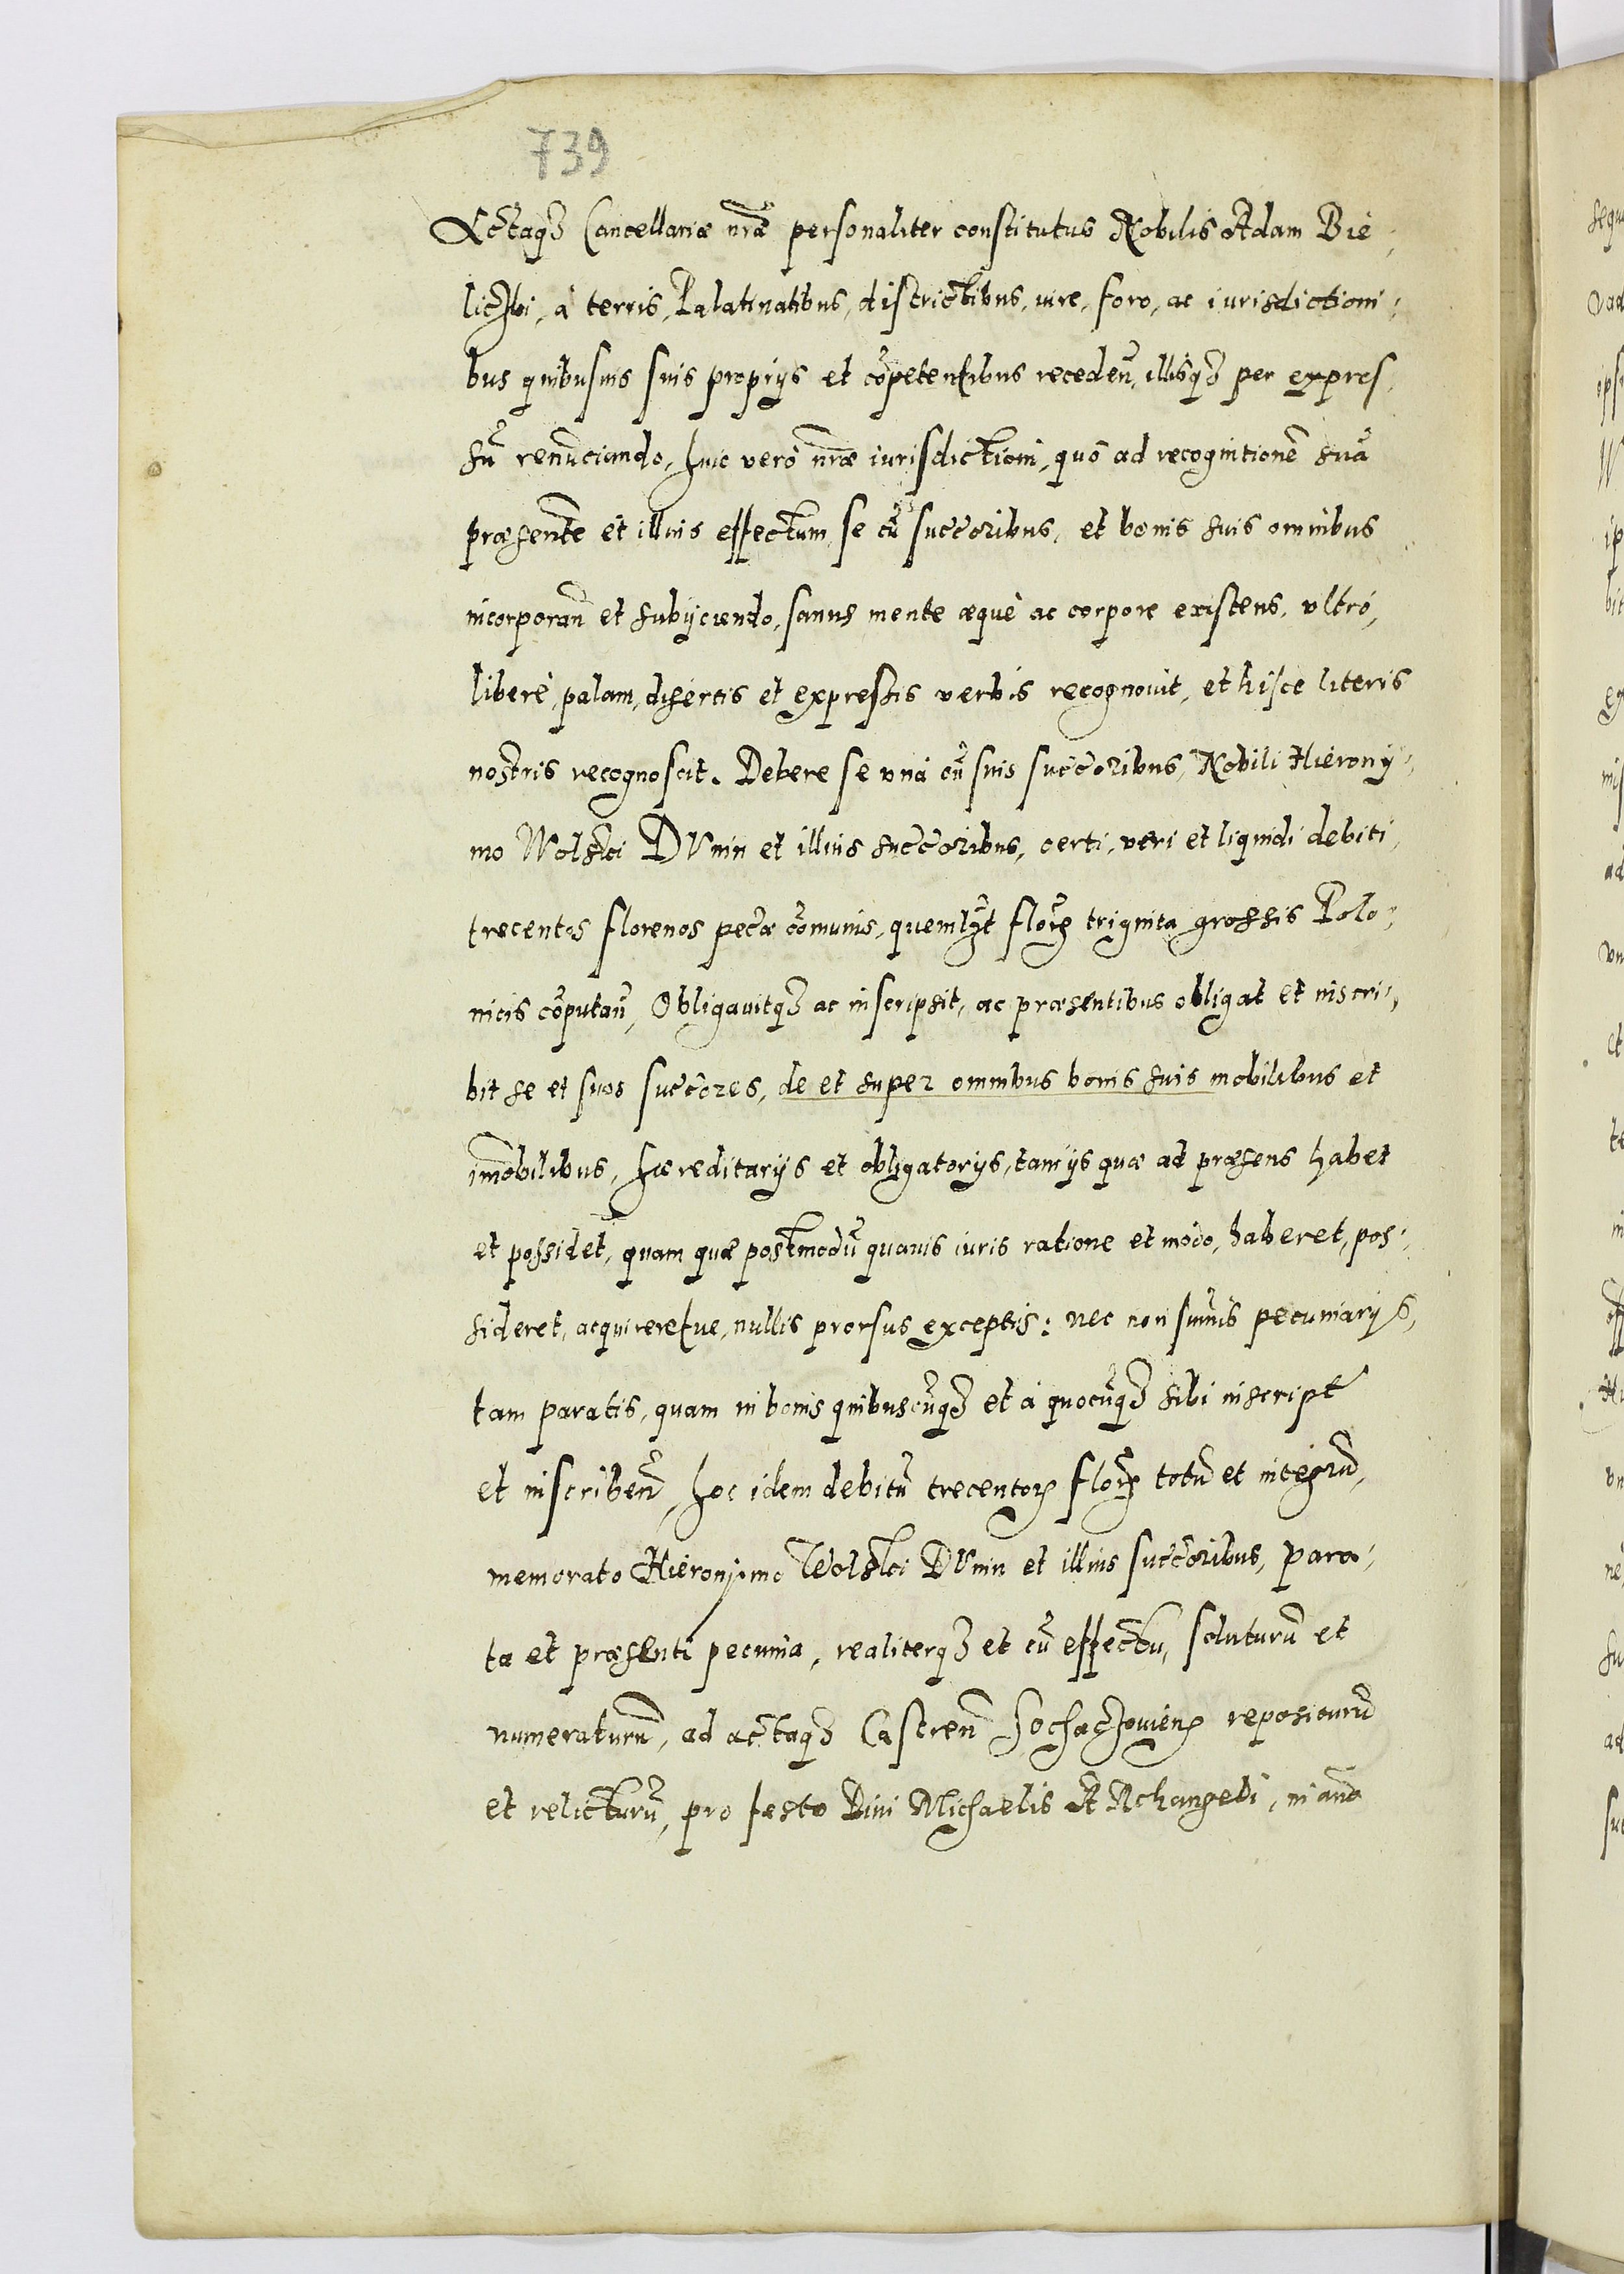 739
Actaq3 Cancellariæ nr̃æ personaliter constitutus Nobilis Adam Bie,
liczki, à terris, Palatinatibus, districtibus, iure, foro, ac iurisdictioni,
bus quibusuis suis proprijs et cõpetentibus receden̄, illisq3 per expres,
sũ renũciando, huic verò nr̃æ iurisdictioni, quò ad recognitionẽ suã
præsentẽ et illius effectum, se cũ succ̃oribus, et bonis suis omnibus
incorporan̄ et subijciendo, sanus mente æquè ac corpore existens, vltrò,
liberè, palam, disertis et expressis verbis recognouit, et hisce literis
nostris recognoscit. Debere se vnà cũ suis succ̃oribus, Nobili Hierony,
mo Wolski DVnin et illius succ̃oribus, certi, veri et liquidi debiti,
trecentos florenos pec̃æ cõmunis, quemlꝫt florꝝ triginta grossis Polo,
nicis cõputan̄, Obligauitq3 ac inscripsit, ac præsentibus obligat et inscri,
bit se et suos succ̃ores, de et super omnibus bonis suis mobilibus et
im̃obilibus, hæreditarijs et obligatorijs, tam ijs quæ ad præsens habet
et possidet, quam quæ postmodũ quauis iuris ratione et modo, haberet, pos,
sideret, acquireretue, nullis prorsus exceptis: nec non sum̃is pecuniarijs,
tam paratis, quam in bonis quibuscũq3 et à quocũq3 sibi inscript̃
et inscriben̄, hoc idem debitũ trecentoꝝ florꝝ totũ et integrũ,
memorato Hieronymo Wolski DVnin et illius succ̃oribus, para,
ta et præsenti pecunia, realiterq3 et cũ effectu, soluturũ et
numeraturũ, ad actaq3 Castren̄ Sochaczouienꝫ repositurũ
et relicturũ, pro festo Diui Michaelis ARchangeli, in anõ